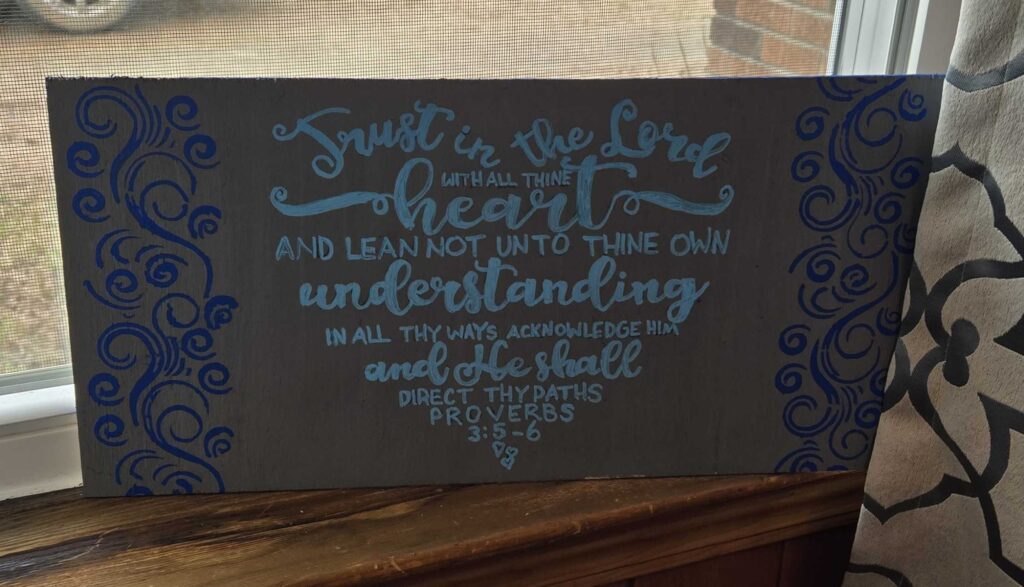 Trust in the Lord
WITH ALL THINE
heart
AND LEAN NOT UNTO THINE OWN
understanding
IN ALL THY WAYS ACKNOWLEDGE HIM
and He shall
DIRECT THY PATHS
PROVERBS
3:5-6